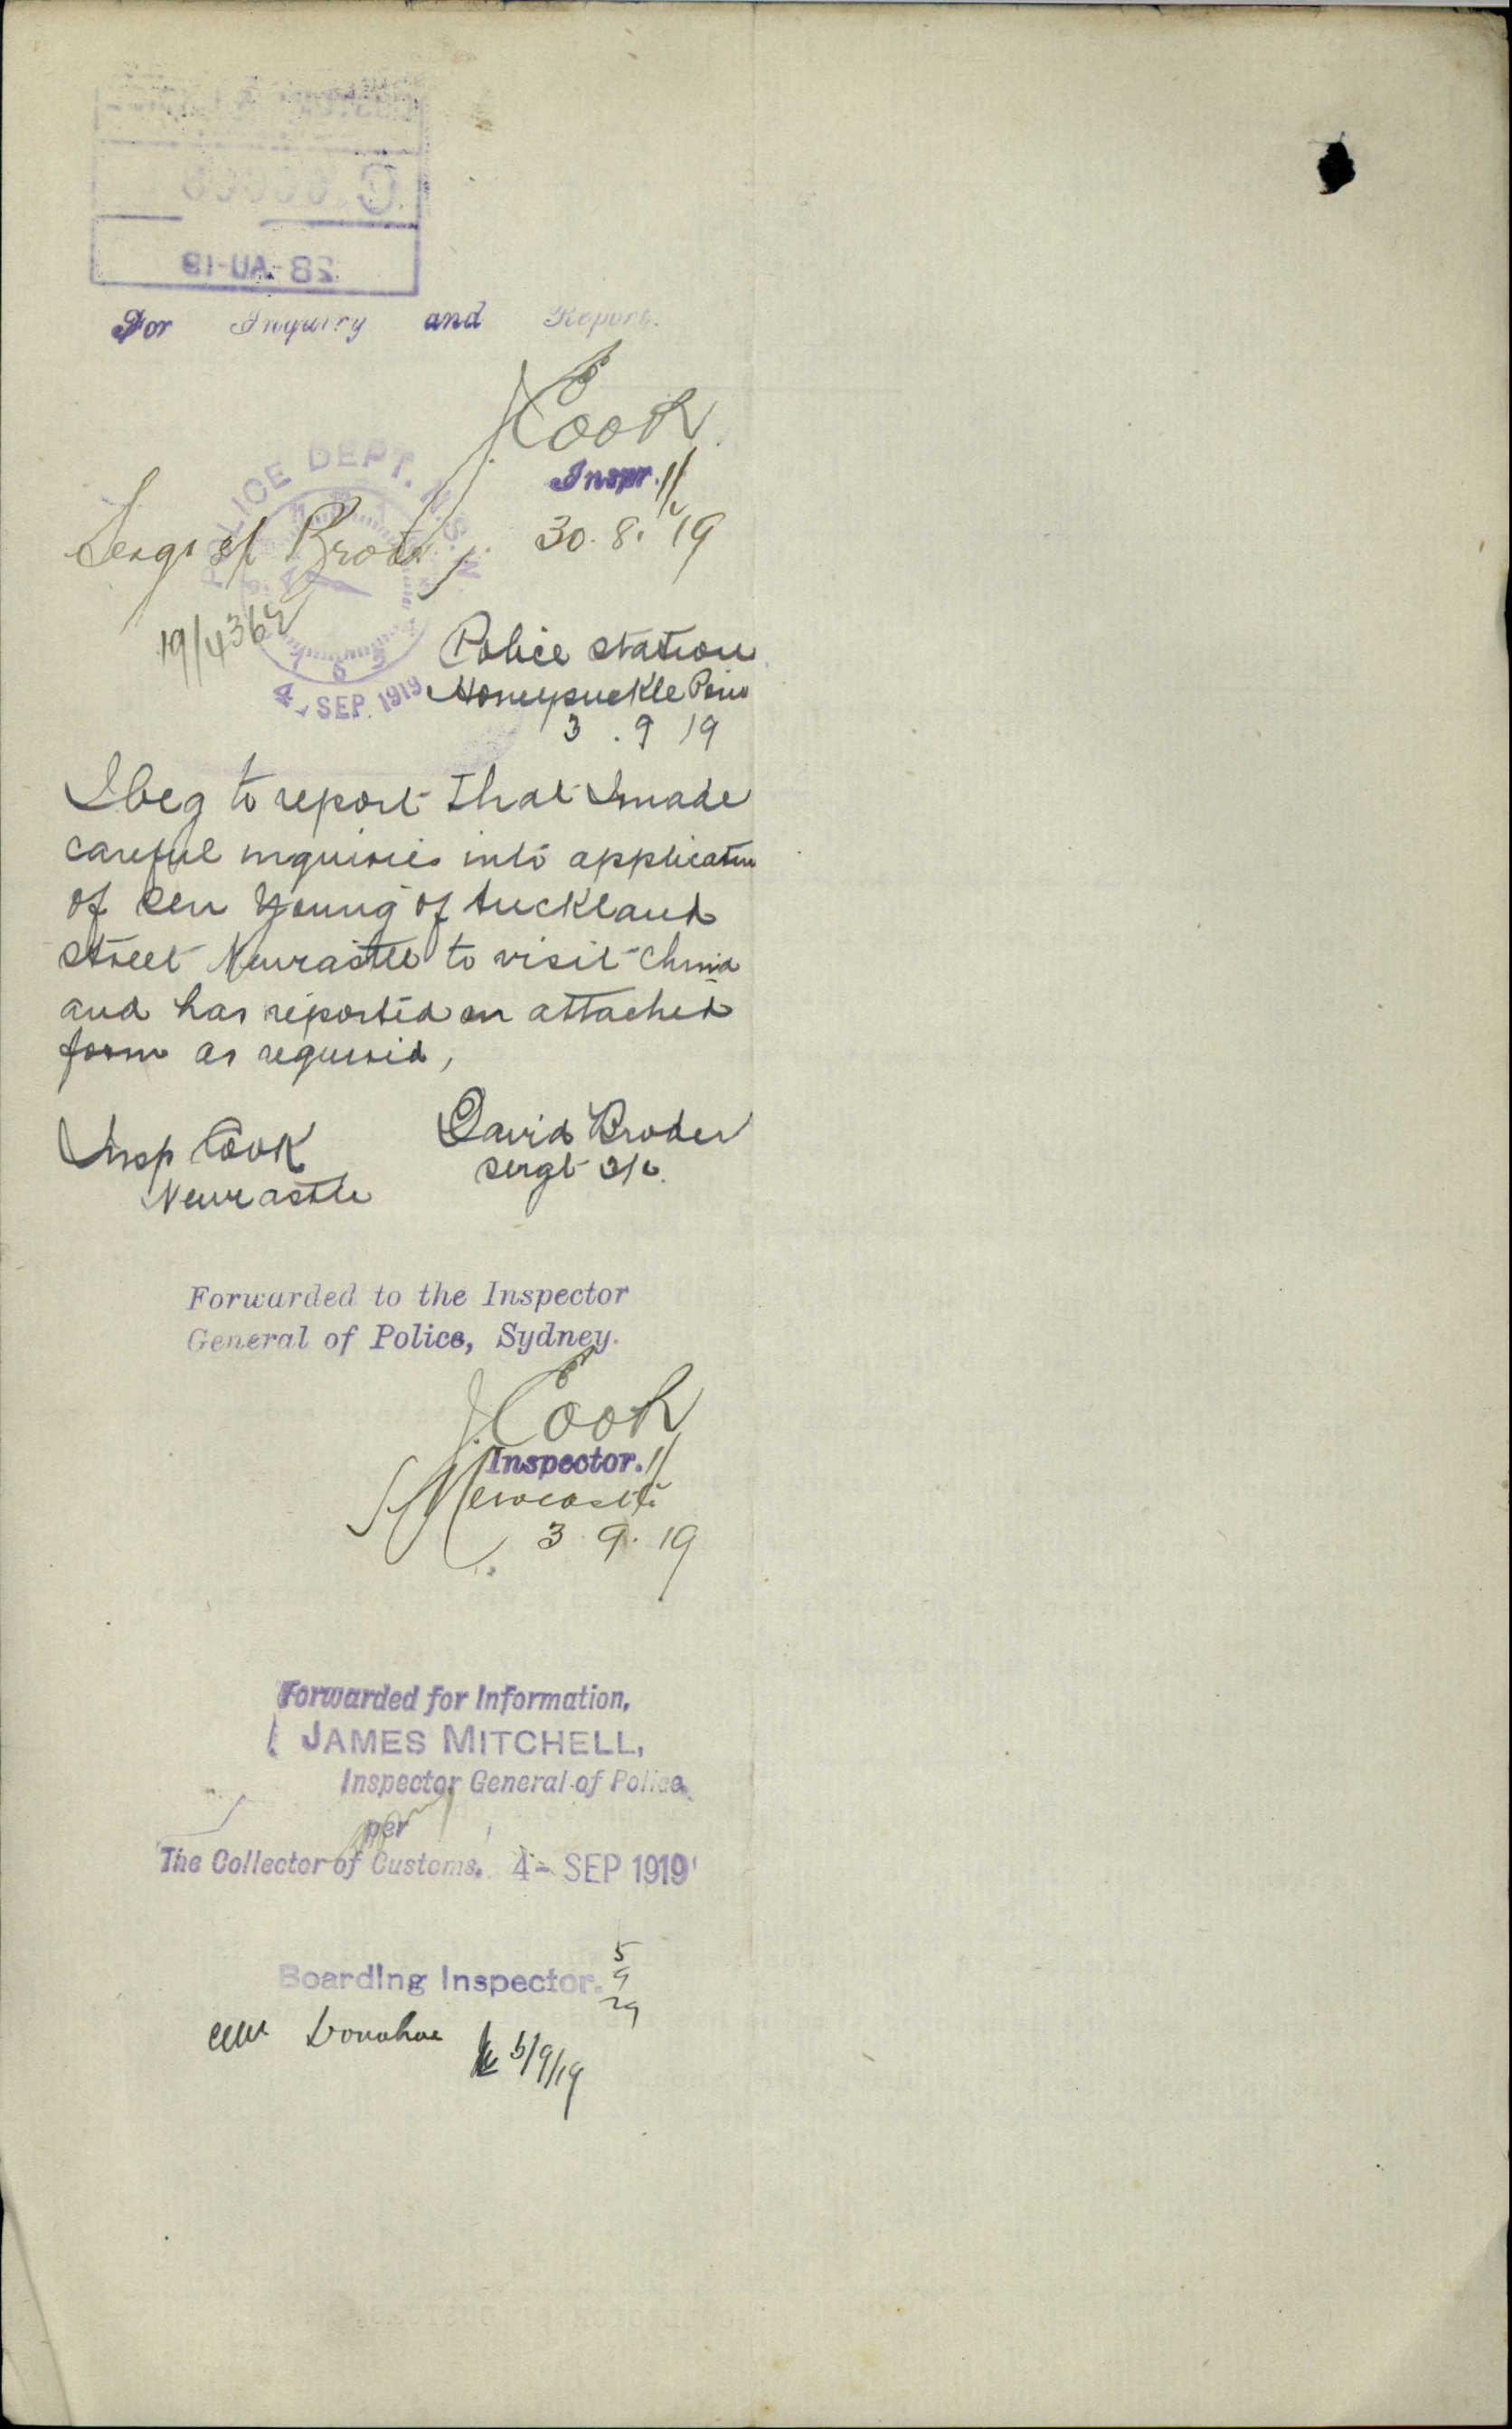 28-AU-19
For Inquiry and Report.
J Cook
Inspr.
30.8.19
POLICE DEPT. N.S.W.
4- SEP. 1919
19/4362
Police Station
Honeysuckle Point
3.9 19
I beg to report that I made
careful inquiries into application
of Sen Young of Auckland
street Newcastle to visit China
and has reported on attached
form as required,
David Broder
Sergt 3/c.
Insp Cook
Newcastle
Forwarded to the Inspector
General of Police, Sydney.
J. Cook
Inspector.
Newcastle
3.9.19
Forwarded for Information,
JAMES MITCHELL,
Inspector General of Police.
per
The Collector of Customs. 4- SEP 1919
Boarding Inspector. 5 9 19
Mr Donohoe
5/9/19